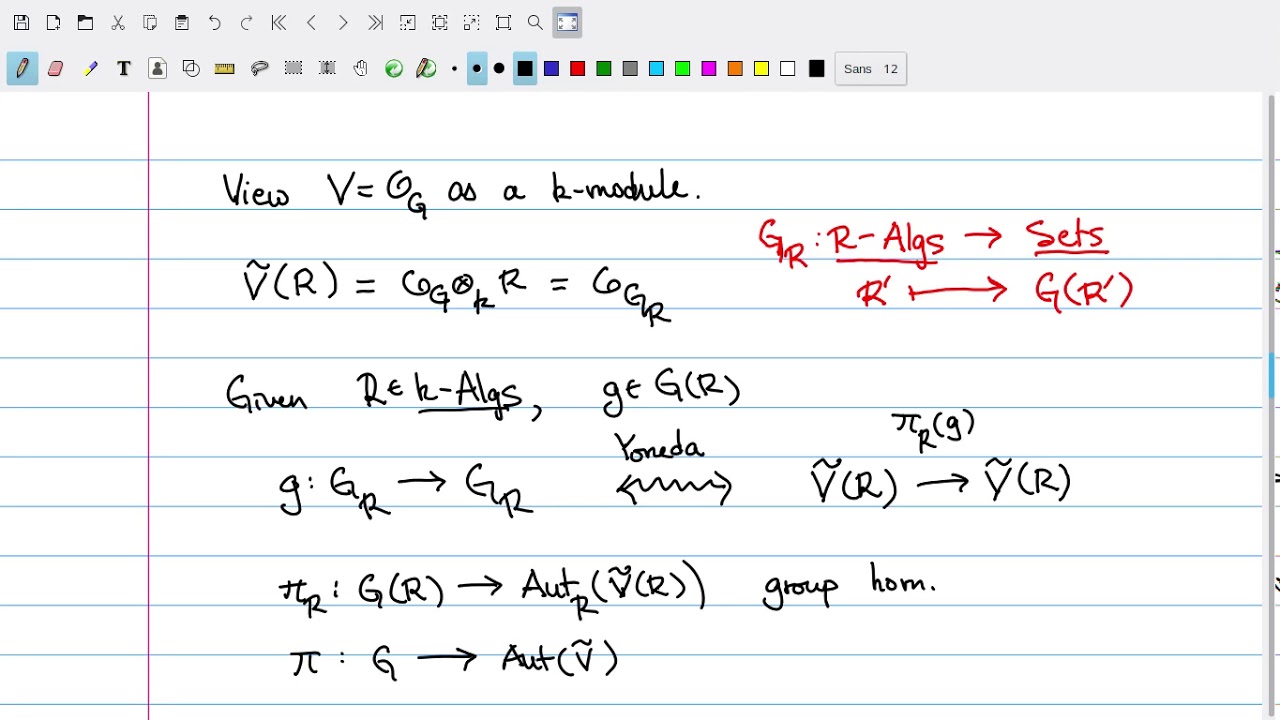 Sans 12
View V = 𝒪_G as a k-module.
G_R : R-Algs → Sets
R' ↦ G(R')
Ṽ(R) = 𝒪_G ⊗_k R = 𝒪_{G_R}
Given R ∈ k-Algs, g ∈ G(R)
g : G_R → G_R Yoneda ↭ Ṽ(R) →^{π_R(g)} Ṽ(R)
π_R : G(R) → Aut_R(Ṽ(R)) group hom.
π : G → Aut(Ṽ)